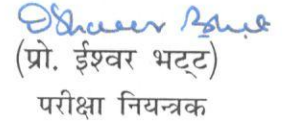 (प्रो. ईश्वर भट्ट)
परीक्षा नियन्त्रक